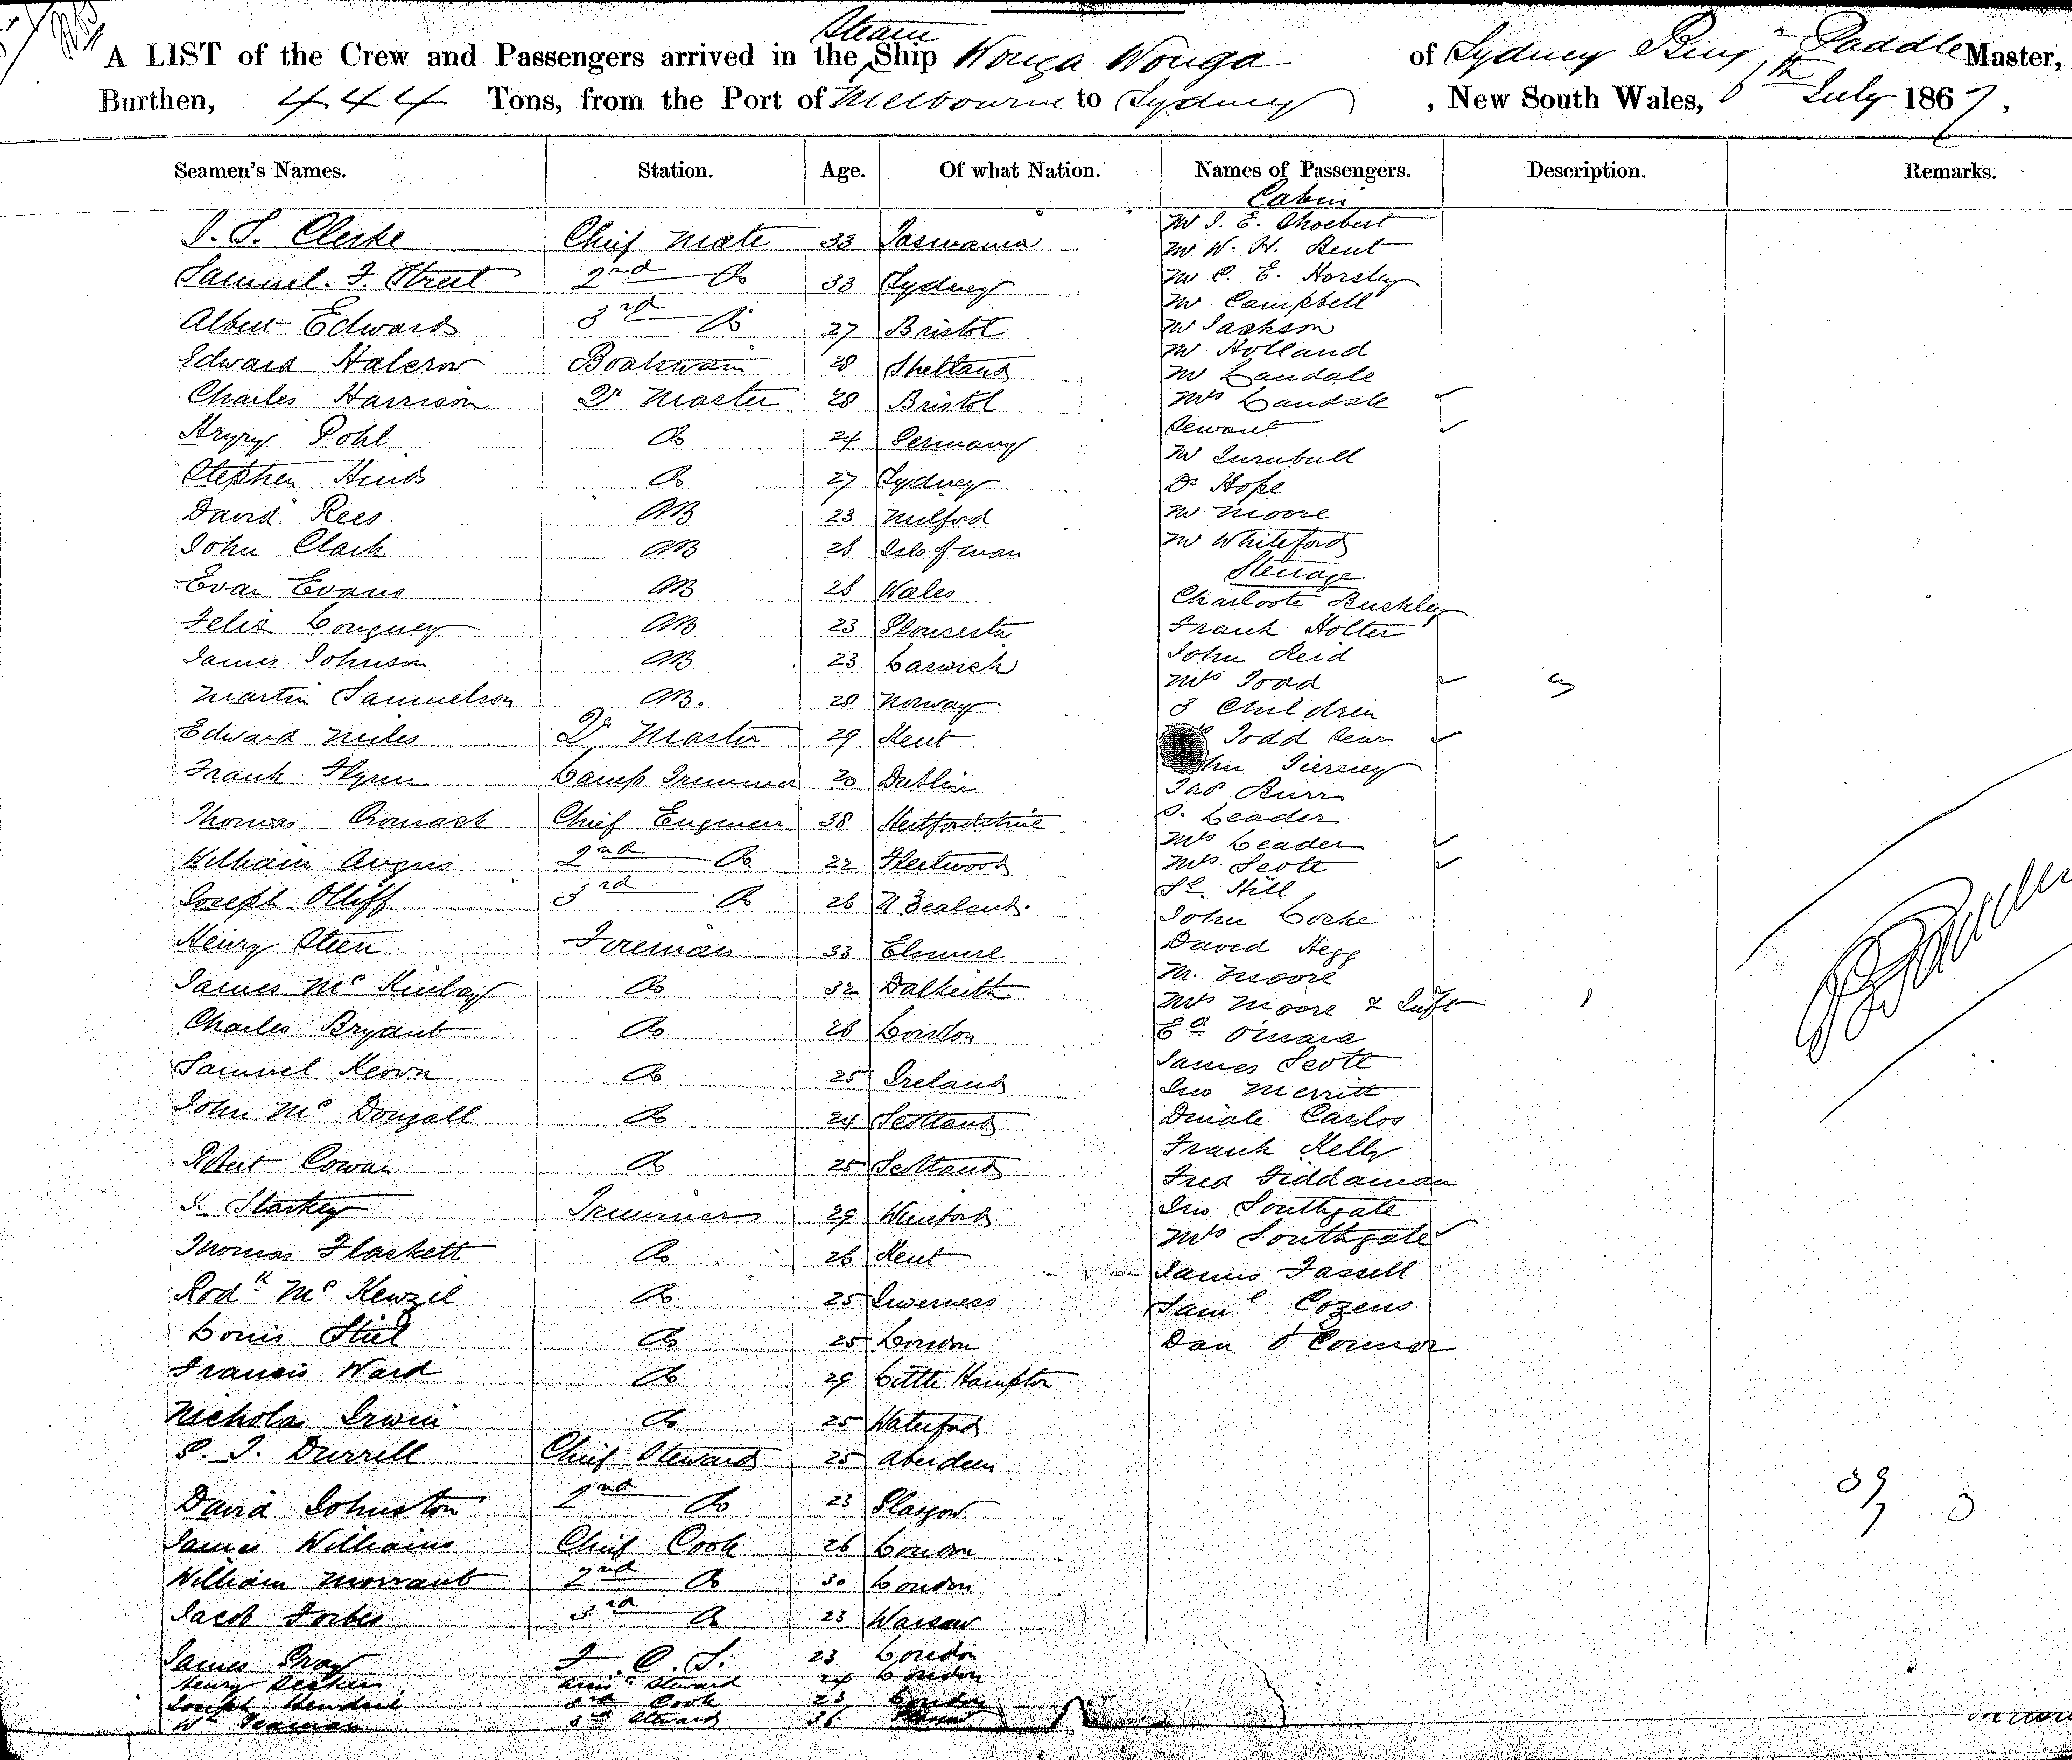 Steam
A LIST of the Crew and Passengers arrived in the Ship Wonga Wonga of Sydney Benj Paddle Master,
Burthen, 444 Tons, from the Port of Melbourne to Sydney, New South Wales, 6th July 1867.
Seamen's Names. Station. Age. Of what Nation. Names of Passengers. Description. Remarks.
Chief Mate 33 Tasmania
Samuel. J. Street 2nd Do 33 Sydney
Albert Edward 3rd Do 27 Bristol
Edward Halcrow Boatswain 28 Shetland
Charles Harrison Qr Master 28 Bristol
Pohl Do 24 Germany
Stephen Hinds Do 27 Sydney
David Rees AB 23 Milford
John Clark AB 28 Isle of Man
Evan Evans AB 28 Wales
Felix AB 23
James Johnson AB 23 Larwich
Martin Samuelson AB. 28 Norway
Edward Miles Qr Master 29 Kent
Frank Flynn Lamp Trimmer 20 Dublin
Thomas Chief Engineer 38 Hertfordshire
William Angus 2nd Do 22 Fleetwood
Joseph Olliff 3rd Do 26 N Zealand.
Henry Steen Fireman 33
James McKinlay Do 32 Dalkeith
Charles Bryant Do 26 London
Samuel Keown Do 25 Ireland
John McDougall Do 24 Scotland
Robert Cowan Do 25 Scotland
Starkey Trimmer 29
Thomas Flackett Do 26 Kent
Rodk McKenzie Do 25 Inverness
Louis Do 25 London
Francis Ward Do 29 Little Hampton
Nicholas Irwin Do 25 Waterford
Durrell Chief Steward 25 Aberdeen
David Johnston 2nd Do 23 Glasgow
James Williams Chief Cook 26 London
William Morrant 2nd Do 30 London
Jacob Forbes 3rd Do 23 Warsaw
James Gray 23 London
Henry Steward 24 London
Joseph 3rd Cook 23 London
Wm Seaman 3rd Steward
Cabin
Mr
Mr W. H. Bent
Mr C. E. Horsley
Mr Campbell
Mr Jackson
Mr Holland
Mr Landale
Mrs Landale
Servant
Mr Turnbull
Dr Hope
Mr Moore
Mr Whiteford
Steerage
Charloote Buckley
Frank Holter
John Reid
Mrs Todd
3 Children
Todd
John Tierney
Jas Burr
Leader
Mrs Leader
Mrs Scott
Hill
John Locke
David Hegg
M. Moore
Mrs Moore & Inft
Ed Omara
James Scott
Jno Merritt
Carlos
Frank Kelly
Fred Fiddaman
Jno Southgate
Mrs Southgate
James Fassell
Saml Cozens
Dan O Connor